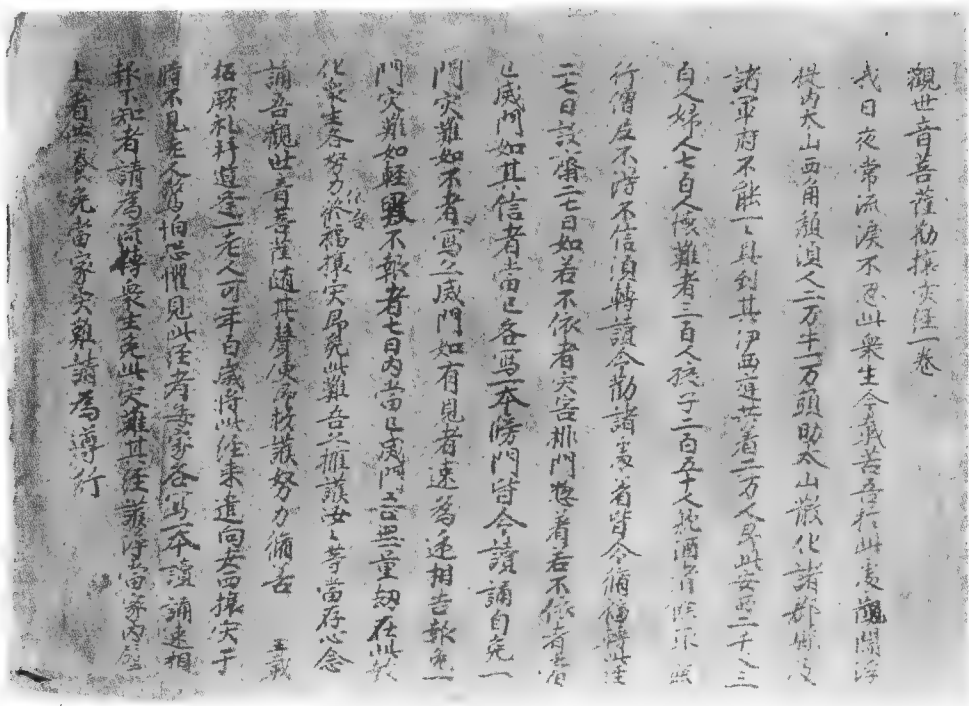 觀世音菩薩勸攘灾經一卷
我日夜常流淚不忍此衆生今載苦吾於此處觀閻浮
提内大山西角頹須人二万牛一万頭助太山散化諸郡縣及
諸軍府不能一一具到其伊西庭共着二万人取此安西二千人三
百人婦人七百人係難者三百人孩子二百五十人就酒
行僧及不淨不信須轉讀今勸諸處有皆令脩福轉此經
二七日設齋二七日如若不依者灾害排門惣着若不依者看
已滅門如其信者當已各寫一本牓門皆令讀誦自免一
門灾難如不者寫之滅門如有見者速爲递相告報免一
門灾難如輕不報者七日内當已滅門吾無量劫在此
化衆生各努力於福攘灾即免此難吾之擁護汝汝等當存心念
誦吾觀世音菩薩随其聲便即救護努力脩善
拓厥礼拜道逢一老人可年百歲將此經来進向安西攘灾于
時不見老人驚怕恐懼見此經者每家各寫一本讀誦速相
報不知者請爲流轉衆生免此灾難其經護浄當家内
上看世養免當家灾難請爲遵行